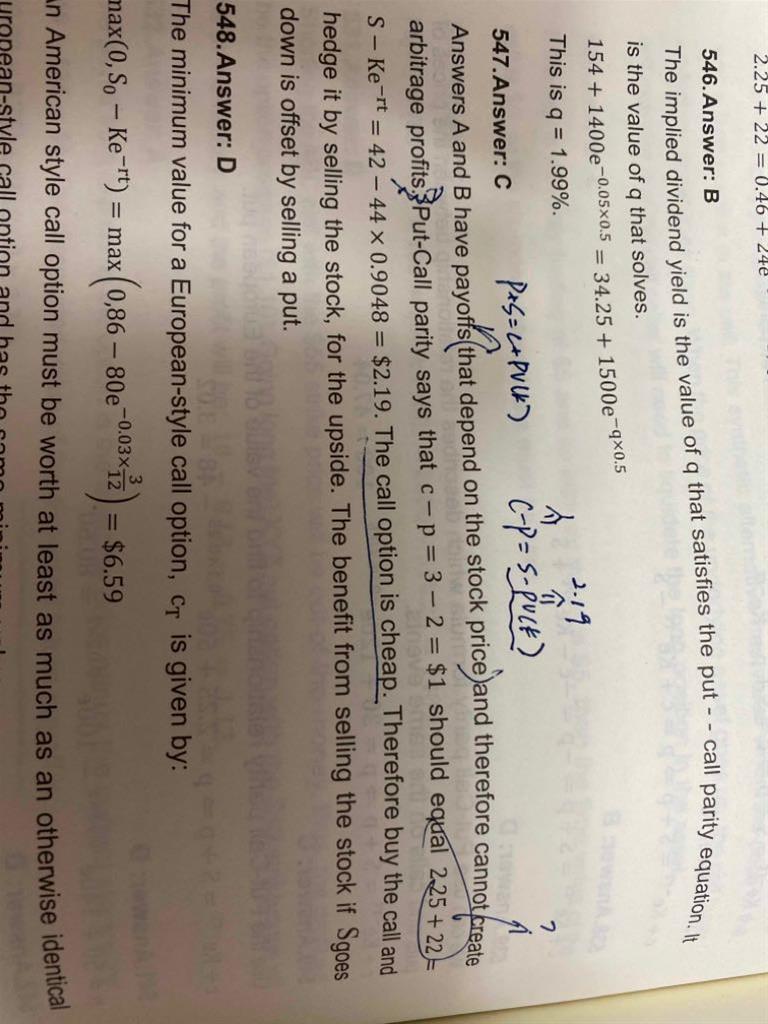 2.25 + 22 = 0.46 + 24e
546.Answer: B
The implied dividend yield is the value of q that satisfies the put - - call parity equation. It
is the value of q that solves.
154 + 1400e^−0.05×0.5 = 34.25 + 1500e^−q×0.5
This is q = 1.99%.
2.19
P+S=C+PV(K) C-P=S-PV(K)
547.Answer: C
Answers A and B have payoffs that depend on the stock price and therefore cannot create
arbitrage profits. Put-Call parity says that c − p = 3 − 2 = $1 should equal 2.25 + 22 =
S − Ke^−rt = 42 − 44 × 0.9048 = $2.19. The call option is cheap. Therefore buy the call and
hedge it by selling the stock, for the upside. The benefit from selling the stock if S goes
down is offset by selling a put.
548.Answer: D
The minimum value for a European-style call option, c_T is given by:
max(0, S₀ − Ke^−rt) = max(0,86 − 80e^−0.03×3/12) = $6.59
An American style call option must be worth at least as much as an otherwise identical
European-style call option and has the same